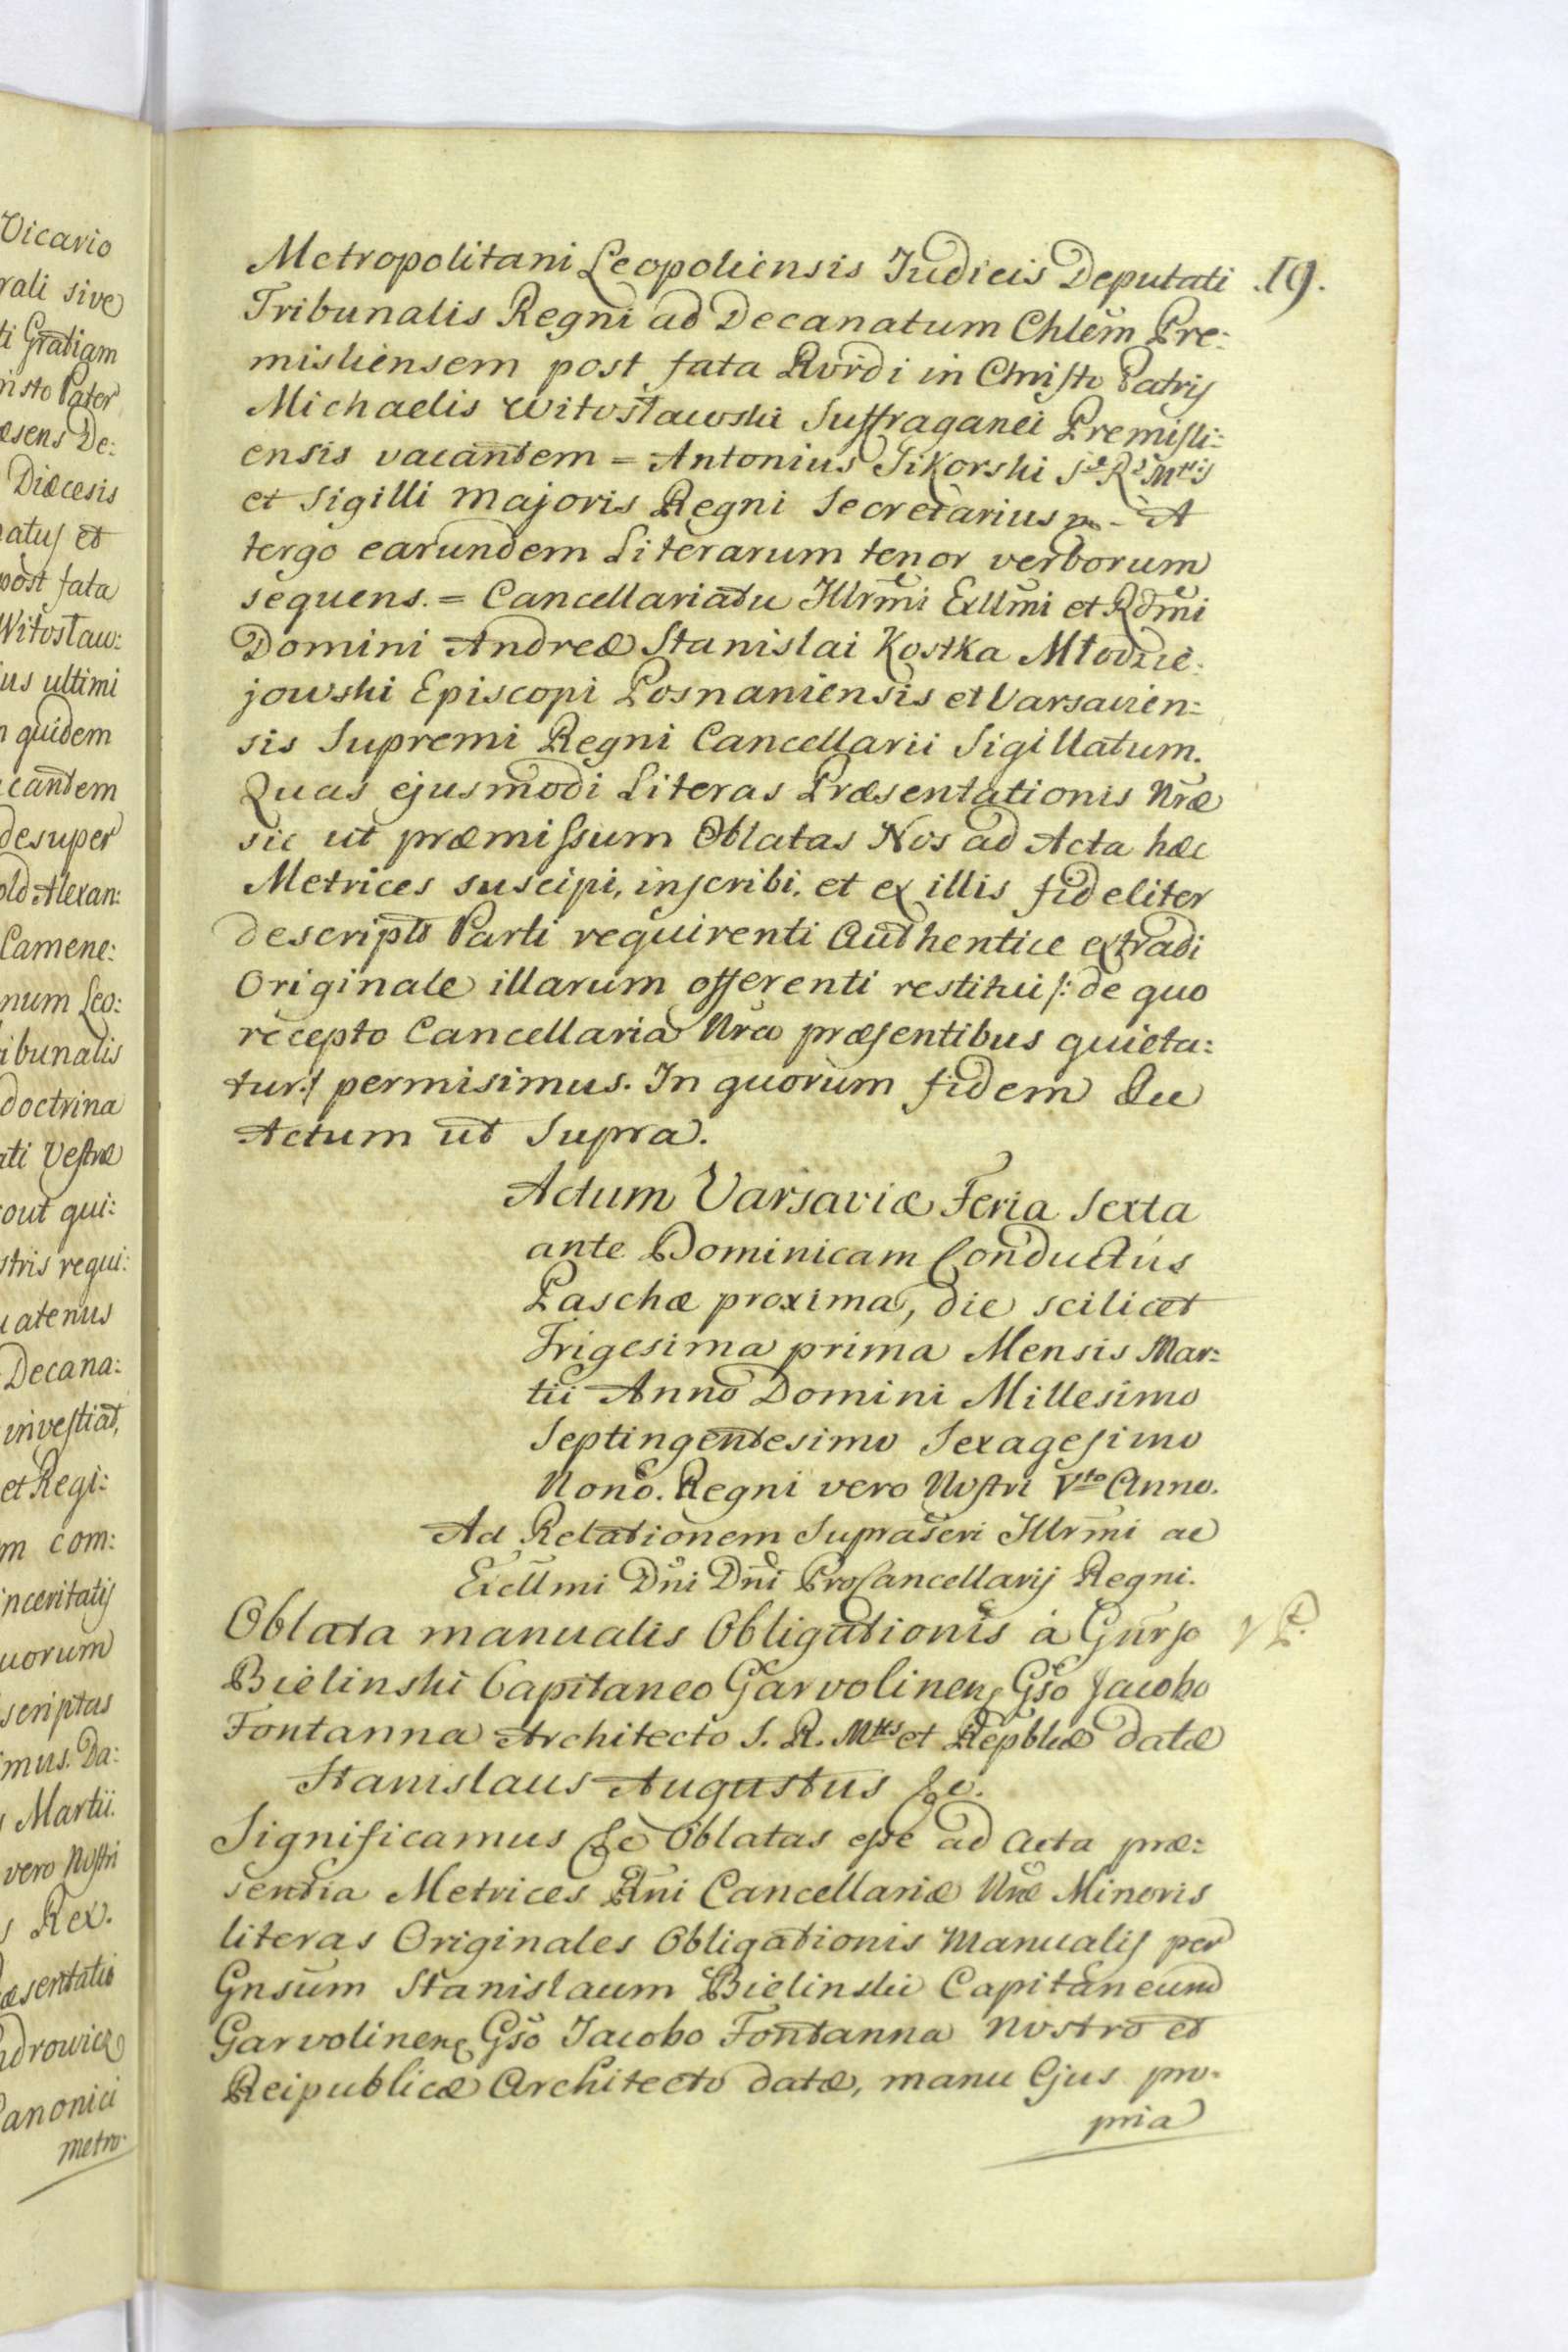 Vicario
rali sive
ti Gratiam
risto Pater
æsens De:
Diæcesis
natus et
post fata
Witosław:
ius ultimi
n quidem
acantem
desuper
old Alexan:
Camene:
num Leo:
ribunalis
doctrina
ati Vestræ
rout qui:
stris requi:
uatenus
Decana:
investiat,
et Regi:
m com:
inceritatis
uorum
scriptas
imus. Da:
s Martii.
vero Nostri
s Rex.
æsentatio
ndrowicz
Canonici
metro-
Metropolitani Leopoliensis Judicis Deputati .19.
Tribunalis Regni ad Decanatum Chlem Pre:
misliensem post fata Rvrdi in Christo Patris
Michaelis Witosławski Suffraganei Premisli:
ensis vacantem = Antonius Sikorski Sæ Ræ Mttis
et Sigilli majoris Regni Secretarius - A
tergo earundem Literarum tenor verborum
sequens. = Cancellariatu Illrmi Exllmi et Rdmi
Domini Andreæ Stanislai Kostka Młodzie:
jowski Episcopi Posnaniensis et Varsavien:
sis Supremi Regni Cancellarii Sigillatum.
Quas ejusmodi Literas Præsentationis Nræ
sic ut præmissum Oblatas Nos ad Acta hæc
Metrices suscipi, inscribi. et ex illis fideliter
descripto Parti requirenti Authentice extradi
Originale illarum offerenti restitui /: de quo
recepto Cancellaria Nra præsentibus quieta:
tur :/ permisimus. In quorum fidem &c
Actum ut Supra.
Actum Varsaviæ Feria Sexta
ante Dominicam Conductus
Paschæ proxima, die scilicet
Trigesima prima Mensis Mar:
tii Anno Domini Millesimo
Septingentesimo Sexagesimo
Nono. Regni vero Nostri Vto Anno.
Ad Relationem Suprascri Illrmi ac
Excllmi Dni Dni ProCancellarij Regni.
Oblata manualis Obligationis à Gnrso
Bielinski Capitaneo Garvolinens Gso Jacobo
Fontanna Architecto S. R. Mttis et Repblcæ datæ
Stanislaus Augustus &c.
Significamus &c Oblatas esse ad Acta præ:
sentia Metrices Rni Cancellariæ Nræ Minoris
literas Originales Obligationis Manualis per
Gnsum Stanislaum Bielinski Capitaneum
Garvolinens Gso Jacobo Fontanna Nostro et
Reipublicæ Architecto datæ, manu Ejus pro-
pria